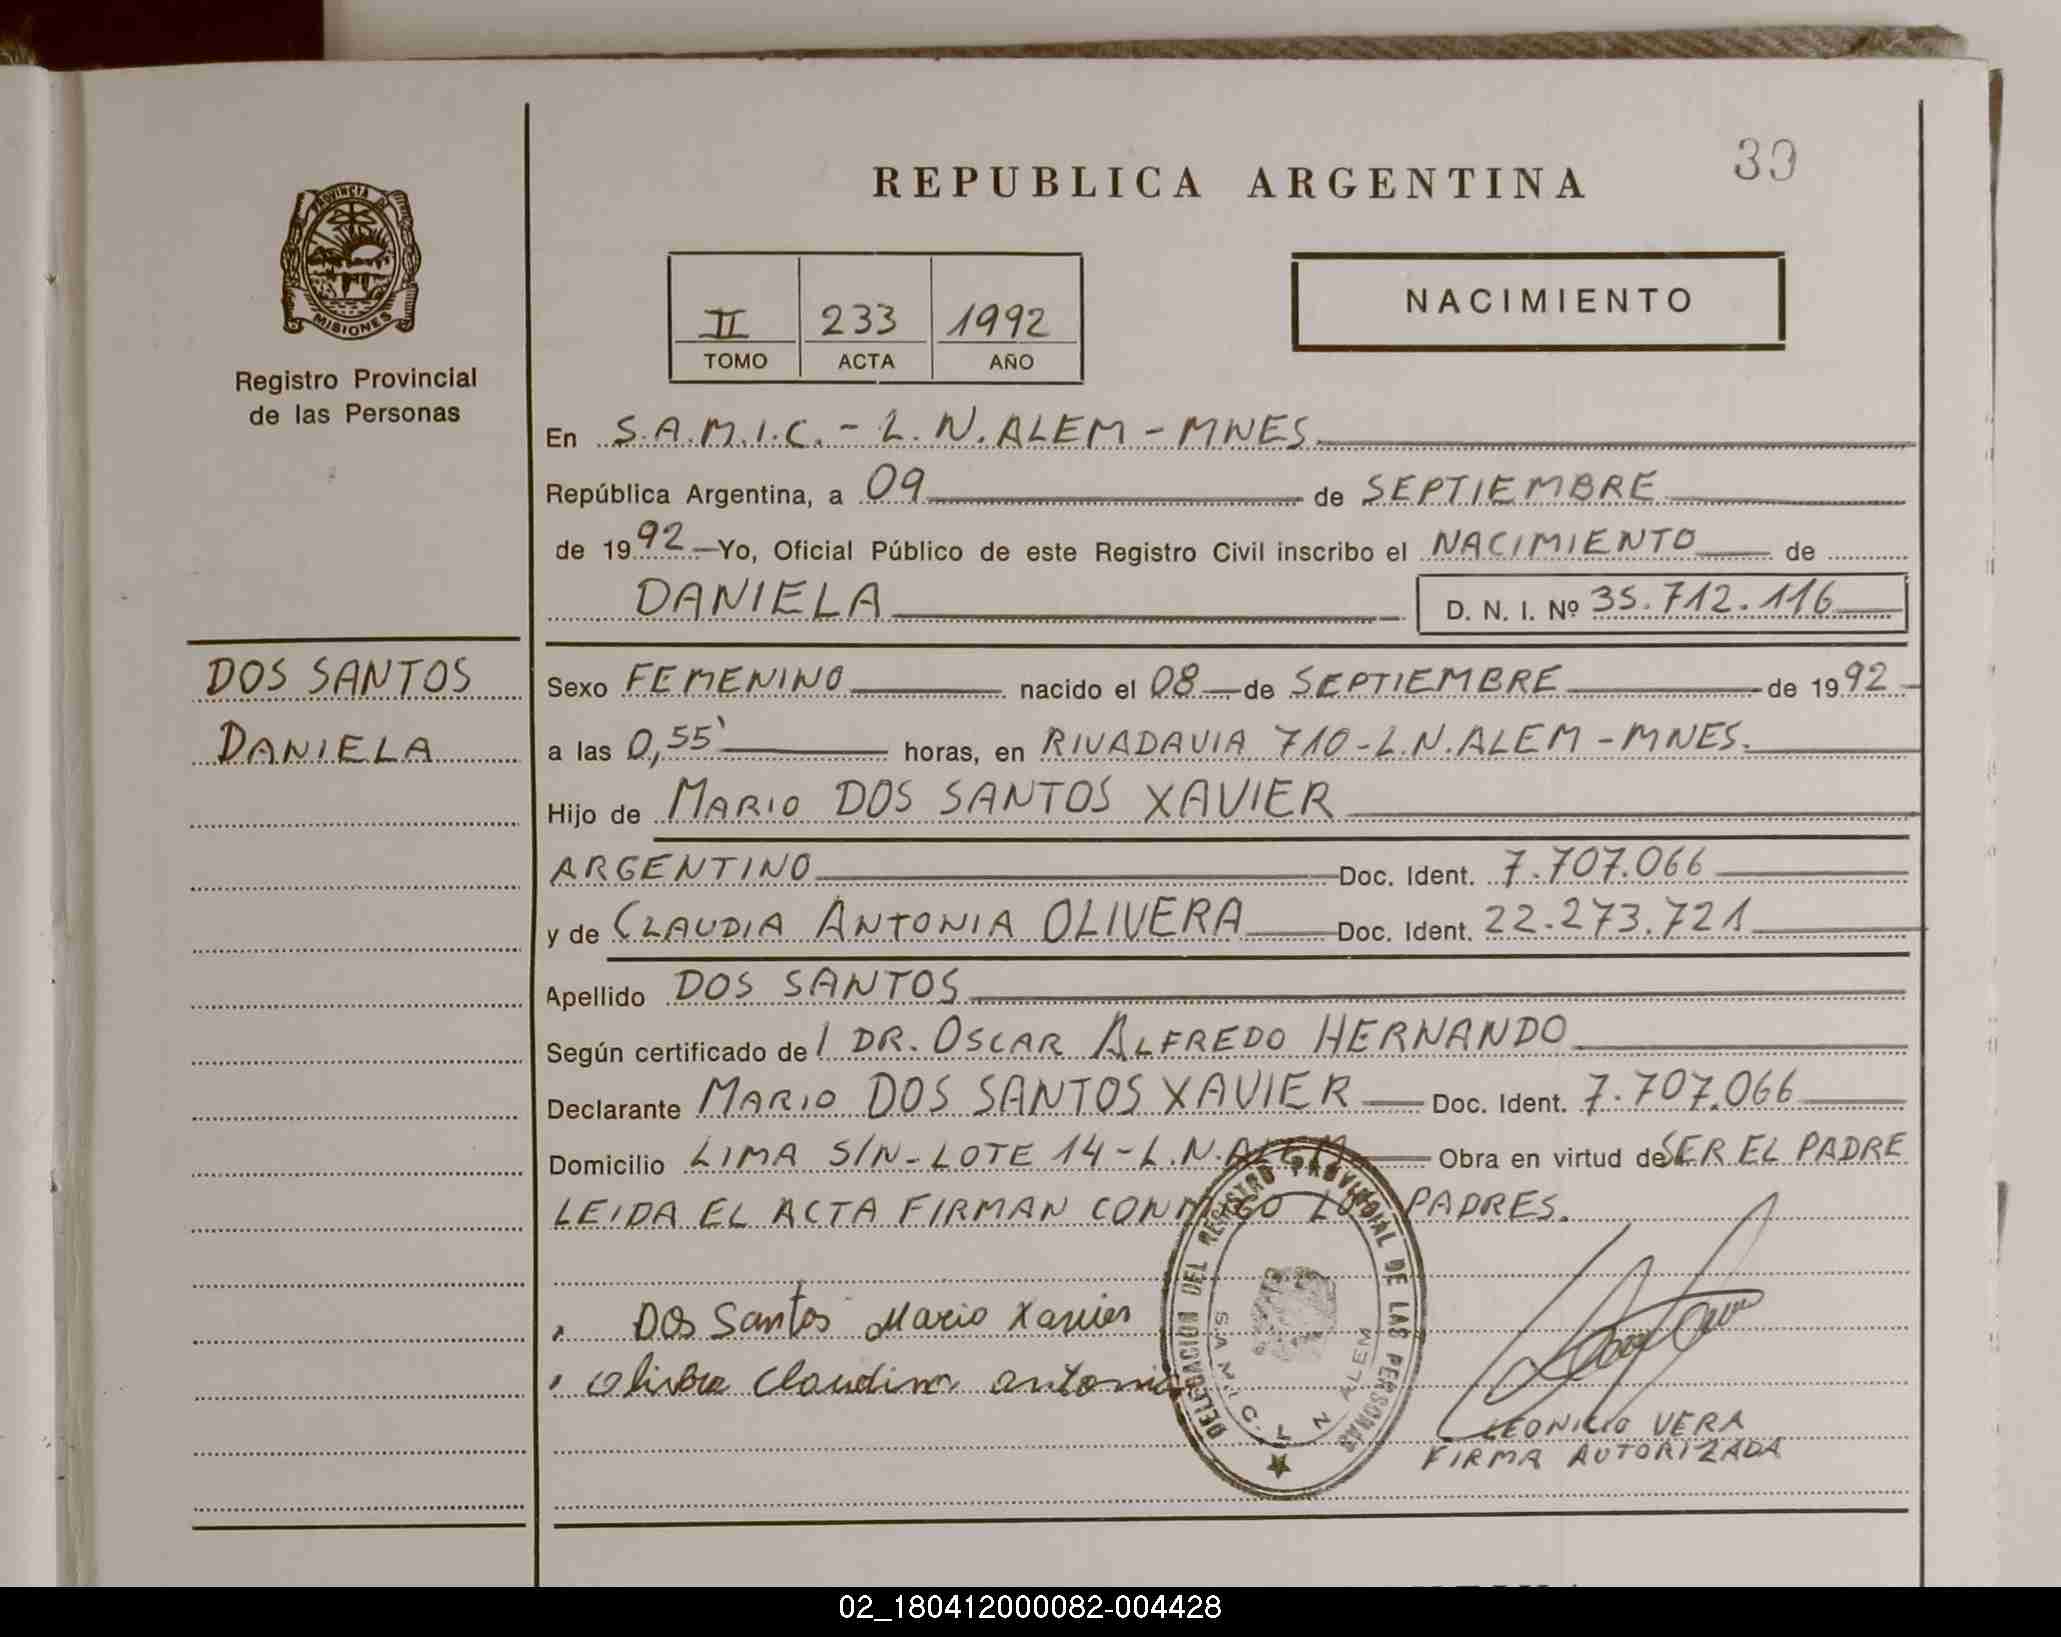 REPUBLICA ARGENTINA
PROVINCIA DE
MISIONES
Registro Provincial
de las Personas
II 233 1992
TOMO ACTA AÑO
NACIMIENTO
En S.A.M.I.C. - L.N. ALEM - MNES.
República Argentina, a 09 de SEPTIEMBRE
de 1992 Yo, Oficial Público de este Registro Civil inscribo el NACIMIENTO de
DANIELA D. N. I. Nº 35.712.116
DOS SANTOS
DANIELA
Sexo FEMENINO nacido el 08 de SEPTIEMBRE de 1992
a las 0,55' horas, en RIVADAVIA 710 - L.N. ALEM - MNES.
Hijo de MARIO DOS SANTOS XAVIER
ARGENTINO Doc. Ident. 7.707.066
y de CLAUDIA ANTONIA OLIVERA Doc. Ident. 22.273.721
Apellido DOS SANTOS
Según certificado de l DR. OSCAR ALFREDO HERNANDO
Declarante MARIO DOS SANTOS XAVIER Doc. Ident. 7.707.066
Domicilio LIMA S/N - LOTE 14 - L.N. ALEM Obra en virtud de SER EL PADRE
LEIDA EL ACTA FIRMAN CONMIGO LOS PADRES.
Dos Santos Mario Xavier
claudina antonia
DELEGACION DEL REGISTRO PROVINCIAL DE LAS PERSONAS
S A M I C. L N ALEM
LEONICIO VERA
FIRMA AUTORIZADA
02_180412000082-004428